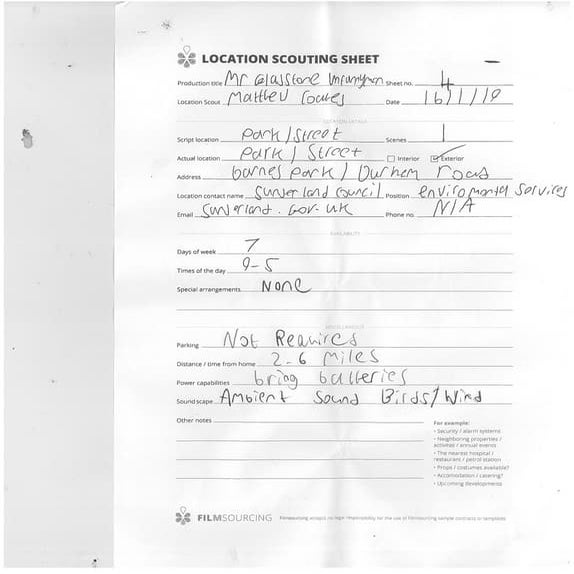 LOCATION SCOUTING SHEET
Production title Mr Glasstone Sheet no. 4
Location Scout Matthew Coates Date 16/1/18
LOCATION DETAILS
Script location Park/Street Scenes 1
Actual location Park / Street Interior Exterior
Address barnes park / Durham road
Location contact name Sunderland Council Position enviromental Services
Email Sunderland.Gov-uk Phone no. N/A
AVAILABILITY
Days of week 7
Times of the day 9-5
Special arrangements None
MISCELLANEOUS
Parking Not Required
Distance / time from home 2-6 miles
Power capabilities bring batteries
Soundscape Ambient Sound Birds/Wind
Other notes
For example:
• Security / alarm systems
• Neighboring properties /
activities / annual events
• The nearest hospital /
restaurant / petrol station
• Props / costumes available?
• Accomodation / catering?
• Upcoming developments
FILMSOURCING Filmsourcing accepts no legal responsibility for the use of Filmsourcing sample contracts or templates